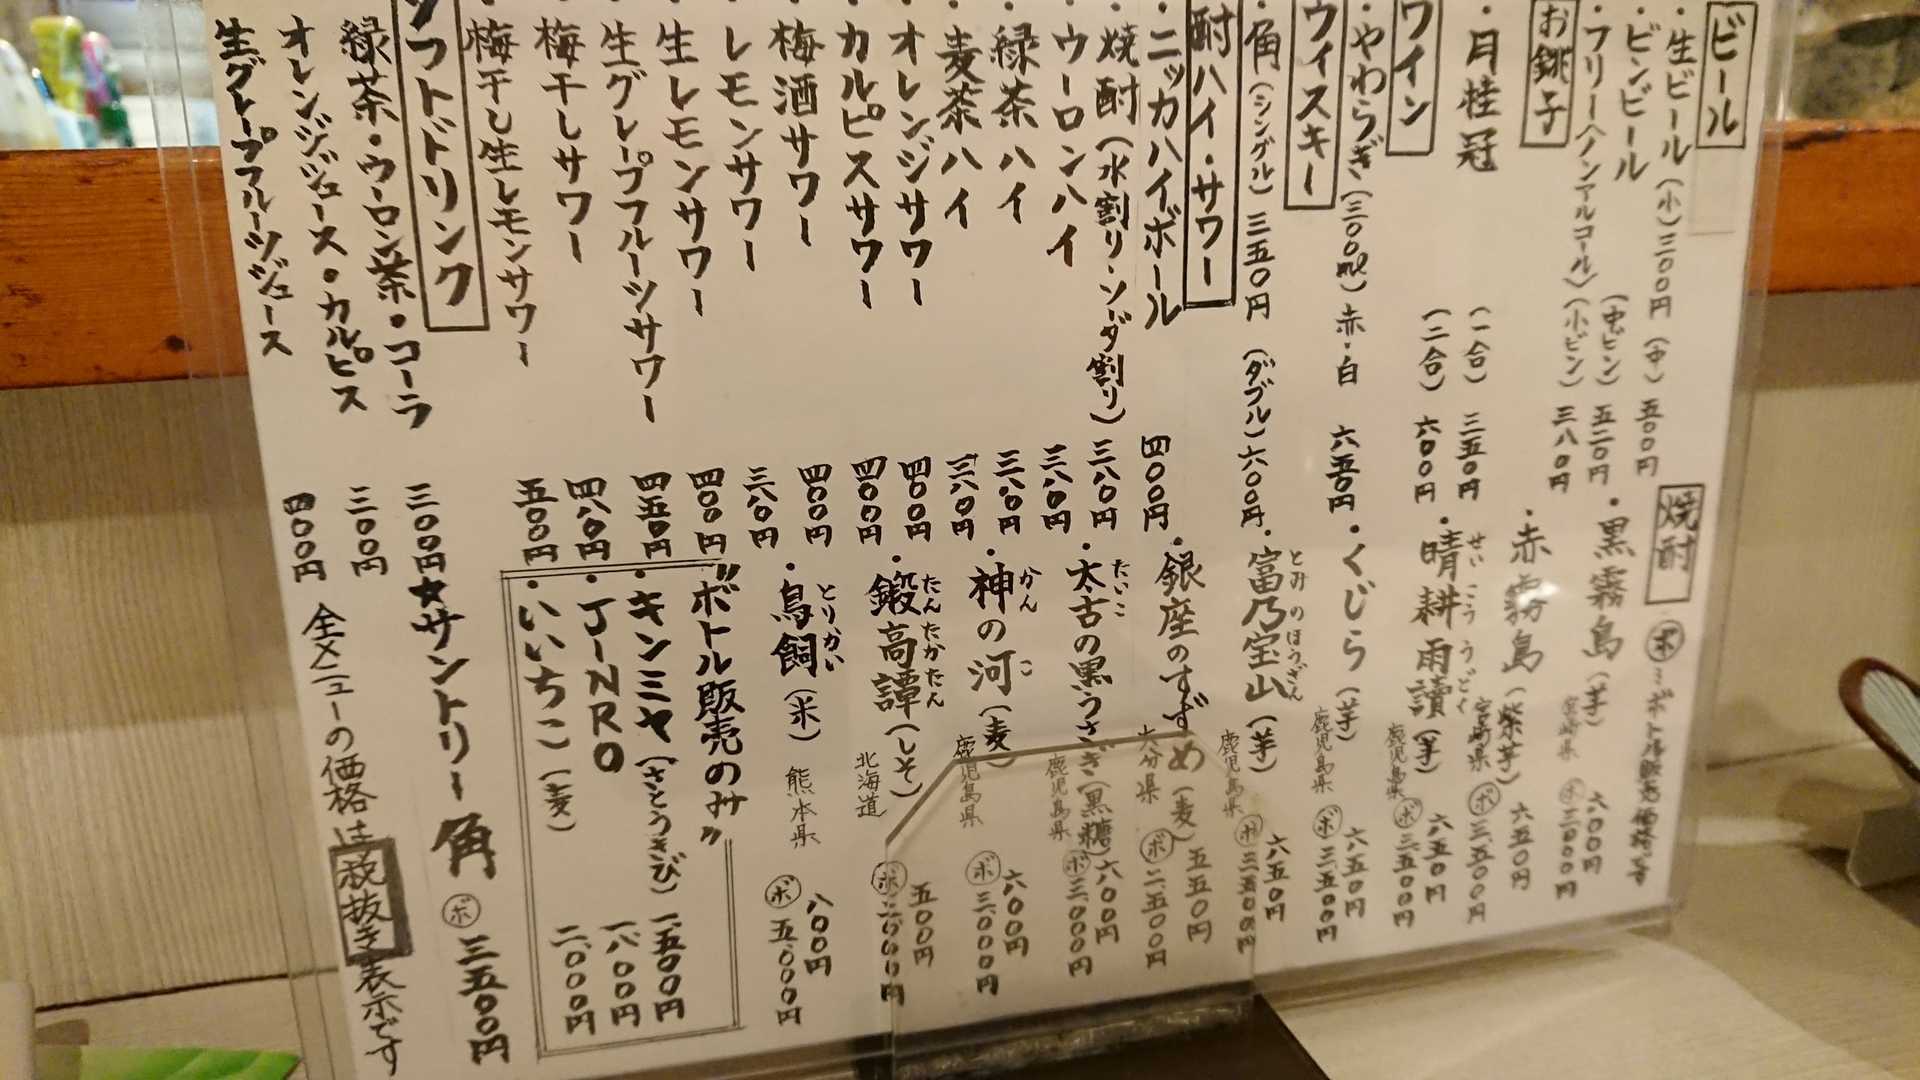 ビール
・生ビール(小)三〇〇円(中)五〇〇円
・ビンビール(中ビン)五二〇円
・フリー(ノンアルコール)(小ビン)三八〇円
お銚子
・月桂冠(一合)三五〇円
(二合)六〇〇円
ワイン
・やわらぎ(三〇〇ml)赤・白 六五〇円
ウィスキー
・角(シングル)三五〇円(ダブル)六〇〇円
酎ハイ・サワー
・ニッカハイボール 四〇〇円
・焼酎(水割り・ソーダ割り)三八〇円
・ウーロンハイ 三八〇円
・緑茶ハイ 三八〇円
・麦茶ハイ 三八〇円
・オレンジサワー 四〇〇円
・カルピスサワー 四〇〇円
・梅酒サワー 四〇〇円
・レモンサワー 三八〇円
・生レモンサワー 四〇〇円
・生グレープフルーツサワー 四五〇円
・梅干しサワー 四八〇円
・梅干し生レモンサワー 五〇〇円
ソフトドリンク
緑茶・ウーロン茶・コーラ 三〇〇円
オレンジジュース・カルピス 三〇〇円
生グレープフルーツジュース 四〇〇円
焼酎
ボ…ボトル販売価格
・黒霧島(芋)宮崎県 六〇〇円
ボ 三、〇〇〇円
・赤霧島(紫芋)宮崎県 六五〇円
ボ 三、五〇〇円
せいこううどく
・晴耕雨讀(芋)鹿児島県 六五〇円
ボ 三、五〇〇円
・くじら(芋)鹿児島県 六五〇円
ボ 三、五〇〇円
とみのほうざん
・富乃宝山(芋)鹿児島県 六五〇円
ボ 三、五〇〇円
・銀座のすずめ(麦)大分県 五五〇円
ボ 二、五〇〇円
たいこ
・太古の黒うさぎ(黒糖)鹿児島県 六〇〇円
ボ 三、〇〇〇円
かんこ
・神の河(麦)鹿児島県 六〇〇円
ボ 三、〇〇〇円
たんたかたん
・鍛高譚(しそ)北海道 五〇〇円
ボ
とりかい
・鳥飼(米)熊本県 八〇〇円
ボ 五、〇〇〇円
"ボトル販売のみ"
・キンミヤ(さとうきび)一、五〇〇円
・JINRO 一、八〇〇円
・いいちこ(麦)二、〇〇〇円
★サントリー角 ボ 三、五〇〇円
全メニューの価格は税抜き表示です